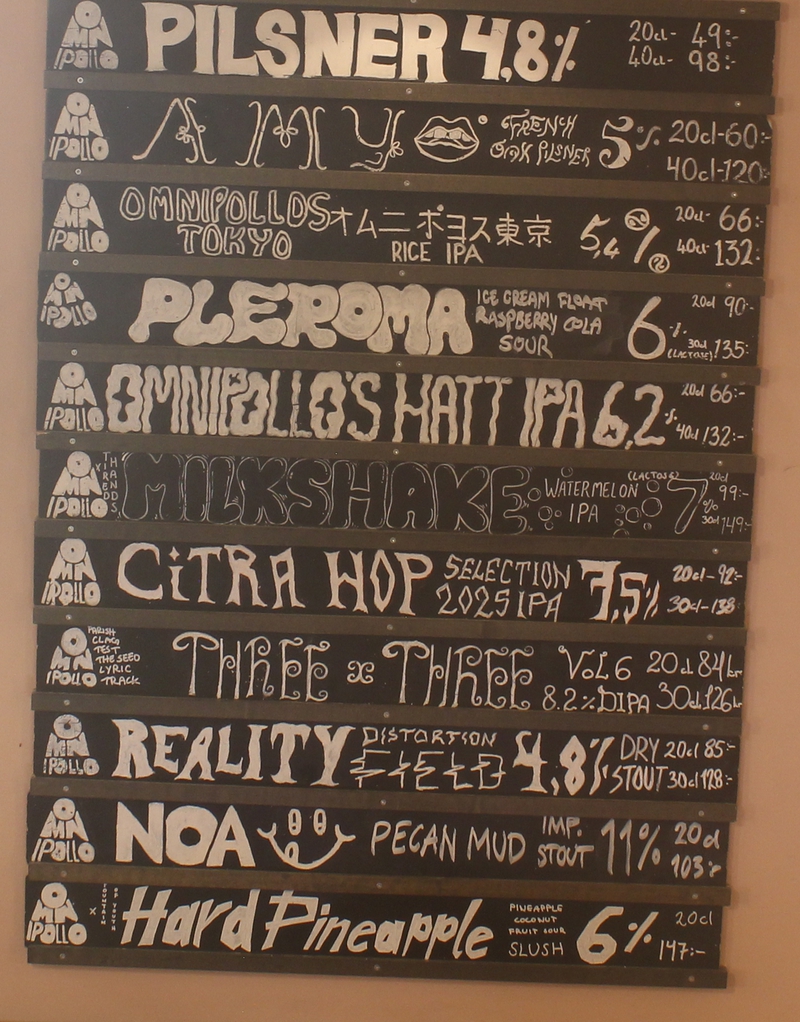 OMNIPOLLO PILSNER 4,8% 20cl- 49:-
40cl- 98:-
OMNIPOLLO AMY FRENCH OAK PILSNER 5% 20cl-60:-
40cl-120:-
OMNIPOLLO OMNIPOLLOS TOKYO オムニポヨス東京 5,4% 20cl- 66:-
RICE IPA 40cl- 132:-
OMNIPOLLO PLEROMA ICE CREAM FLOAT 6% 20cl 90:-
RASPBERRY COLA
SOUR (LACTOSE) 30cl 135:-
OMNIPOLLO OMNIPOLLO'S HATT IPA 6,2% 20cl 66:-
40cl 132:-
OMNIPOLLO TIRED HANDS MILKSHAKE WATERMELON (LACTOSE) 7% 20cl 99:-
IPA 30cl 149:-
OMNIPOLLO CiTRA HOP SELECTION 7,5% 20cl-92:-
2025 IPA 30cl-138:-
OMNIPOLLO PARISH
CLAG
TEST
THE SEED
LYRIC
TRACK
THREE x THREE VOL 6 20cl 84kr
8.2% DIPA 30cl 126kr
OMNIPOLLO REALITY DISTORTION FIELD 4,8% DRY STOUT 20cl 85:-
30cl 128:-
OMNIPOLLO NOA PECAN MUD IMP. STOUT 11% 20cl
103:-
OMNIPOLLO x FOUNTAIN OF YOUTH Hard Pineapple PINEAPPLE
COCONUT
FRUIT SOUR
SLUSH 6% 20cl
147:-